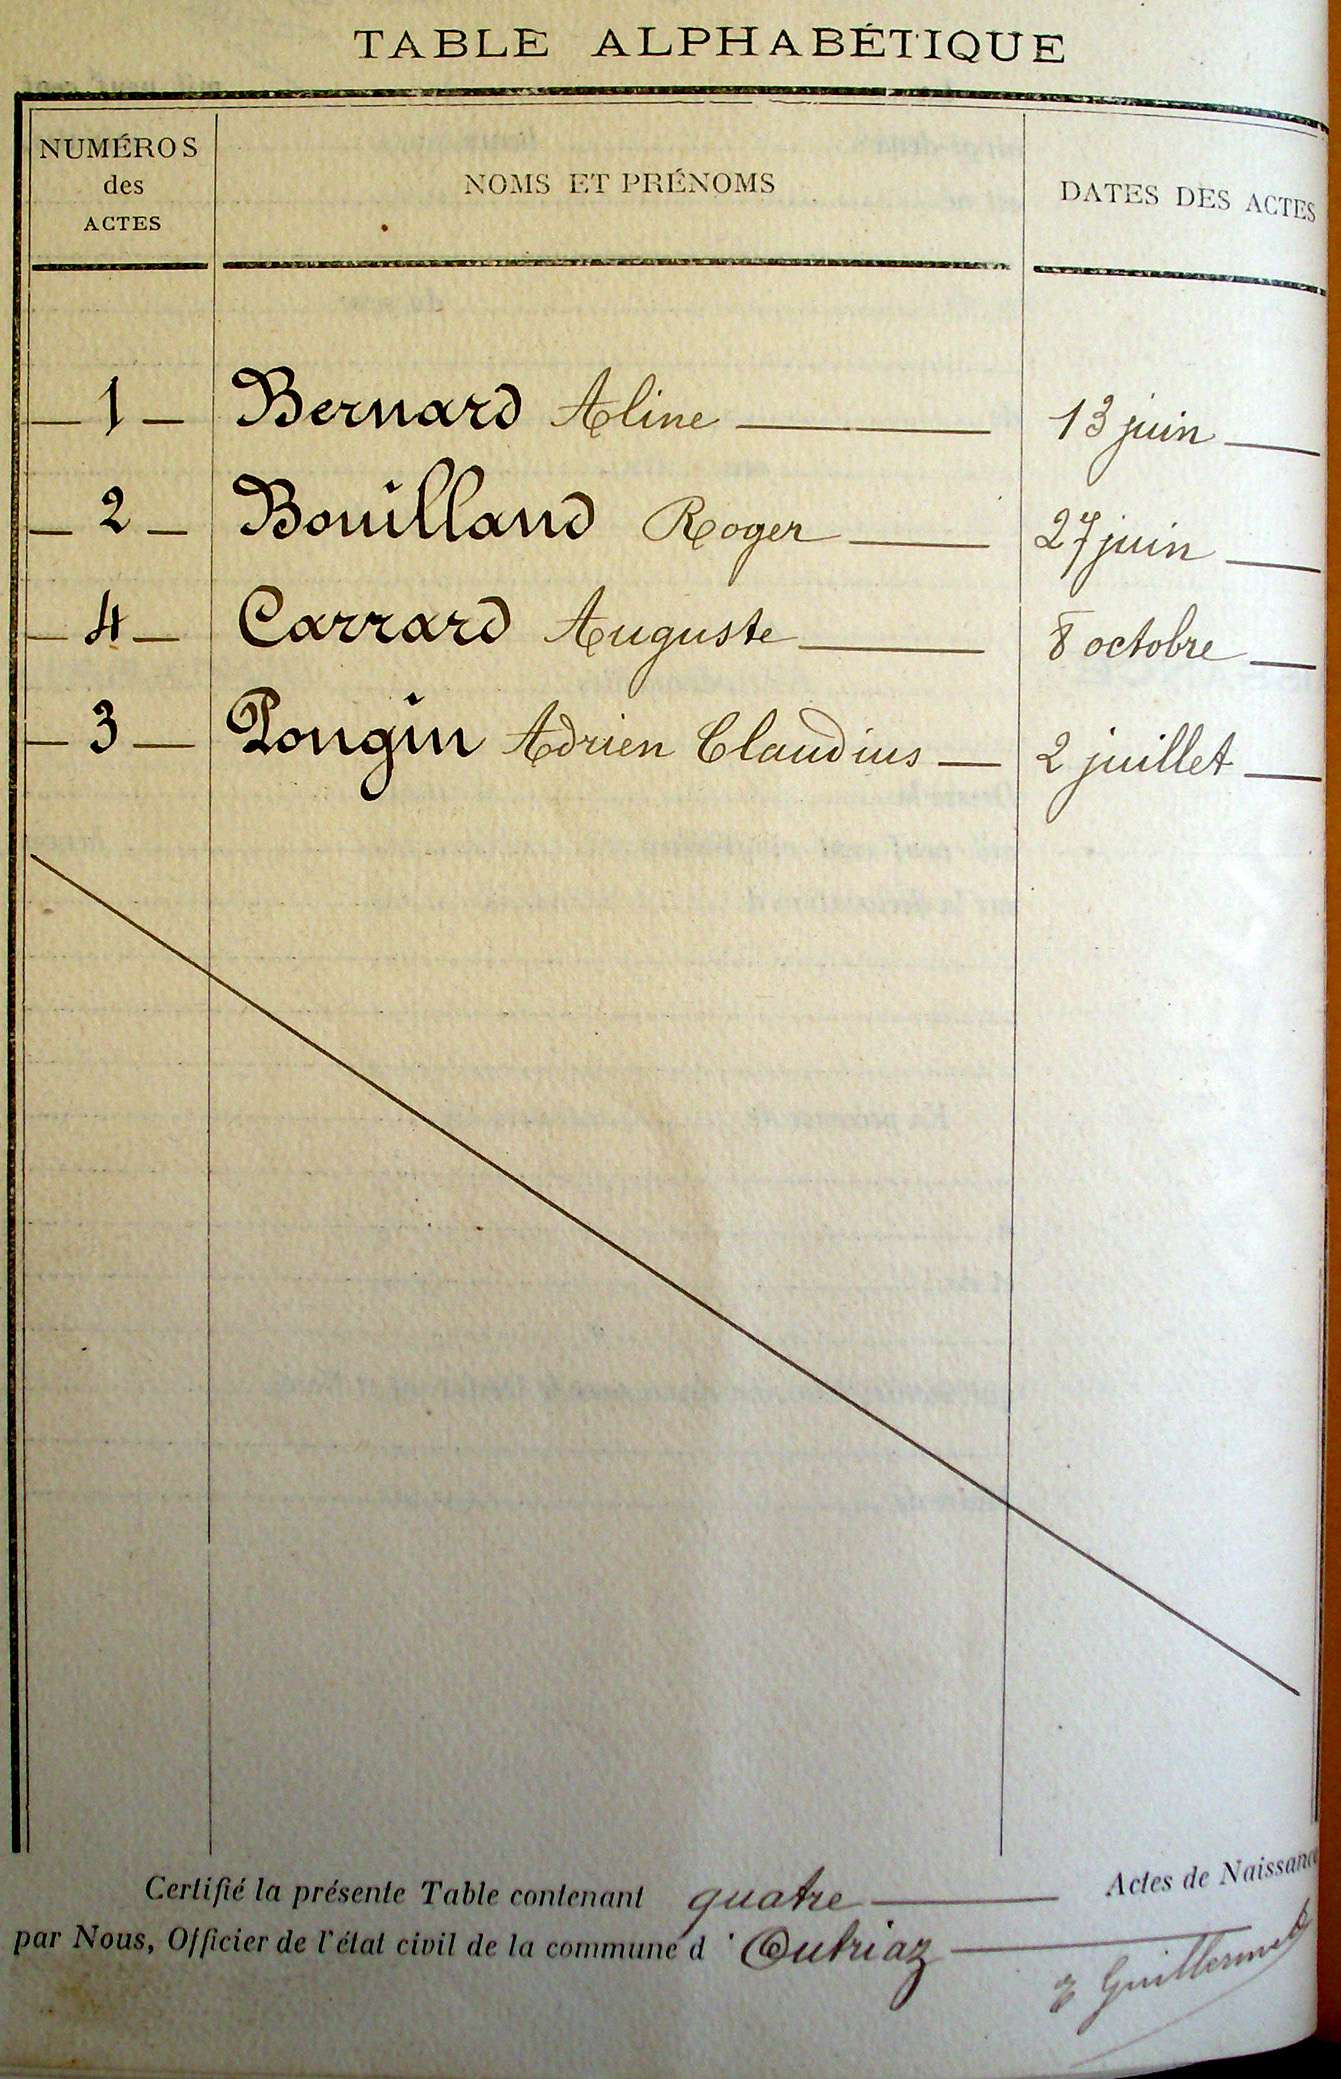 TABLE ALPHABÉTIQUE
NUMÉROS des ACTES NOMS ET PRÉNOMS DATES DES ACTES
1 Bernard Aline 13 juin
2 Bouilland Roger 27 juin
4 Carrard Auguste 8 octobre
3 Pongin Adrien Claudius 2 juillet
Certifié la présente Table contenant quatre Actes de Naissance
par Nous, Officier de l'état civil de la commune d'Outriaz
Guillermet